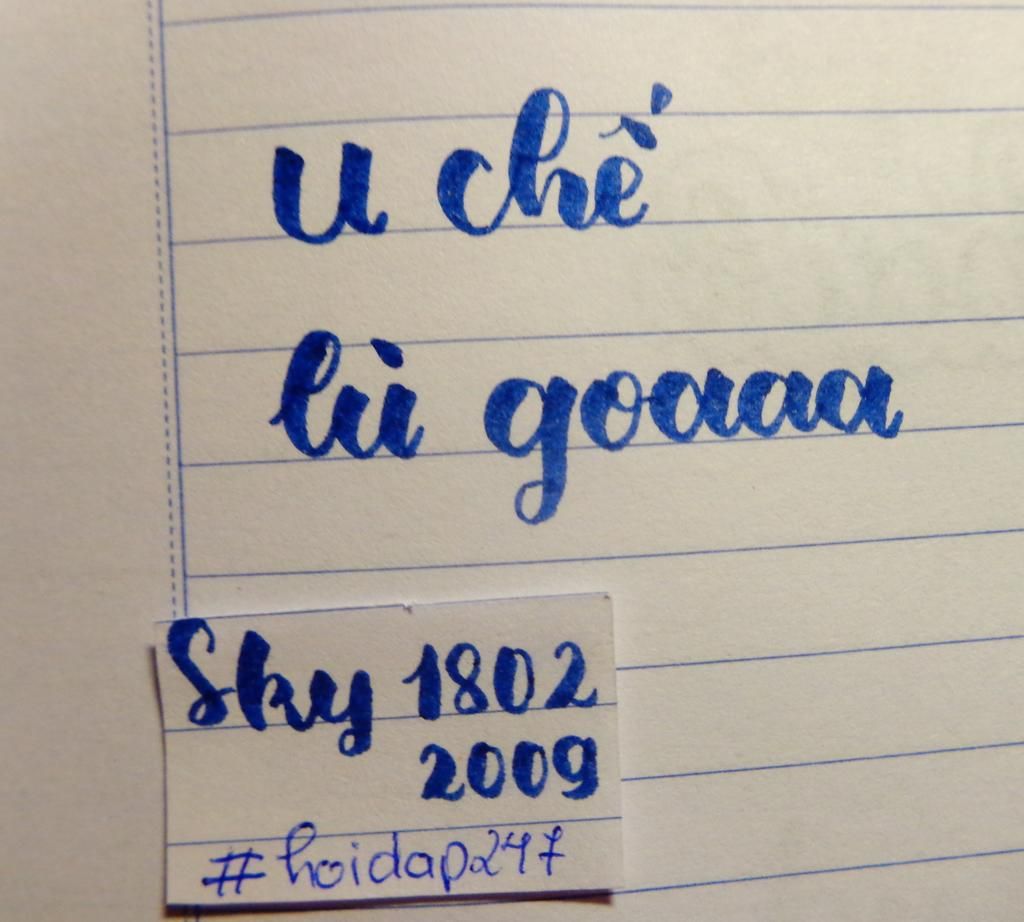 u chề
lù goaaa
Sky 1802
2009
#hoidap247